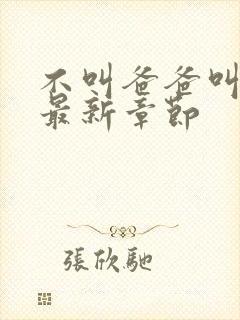 不叫爸爸叫
最新章节
張欣馳